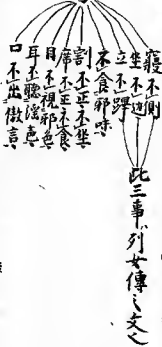 寢不側
坐不边
立不蹕
不食邪味
割不正不坐
席不正不食
目不視邪色
耳不聽淫声
口不出傲言
此三事列女傳之文也